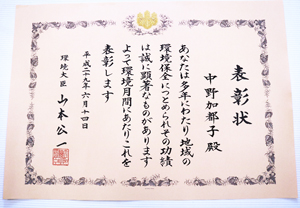 表彰状
中野加都子殿
あなたは多年にわたり地域の
環境保全につとめられその功績
は誠に顕著なものがあります
よって環境月間にあたりこれを
表彰します
平成二十九年六月十四日
環境大臣 山本公一